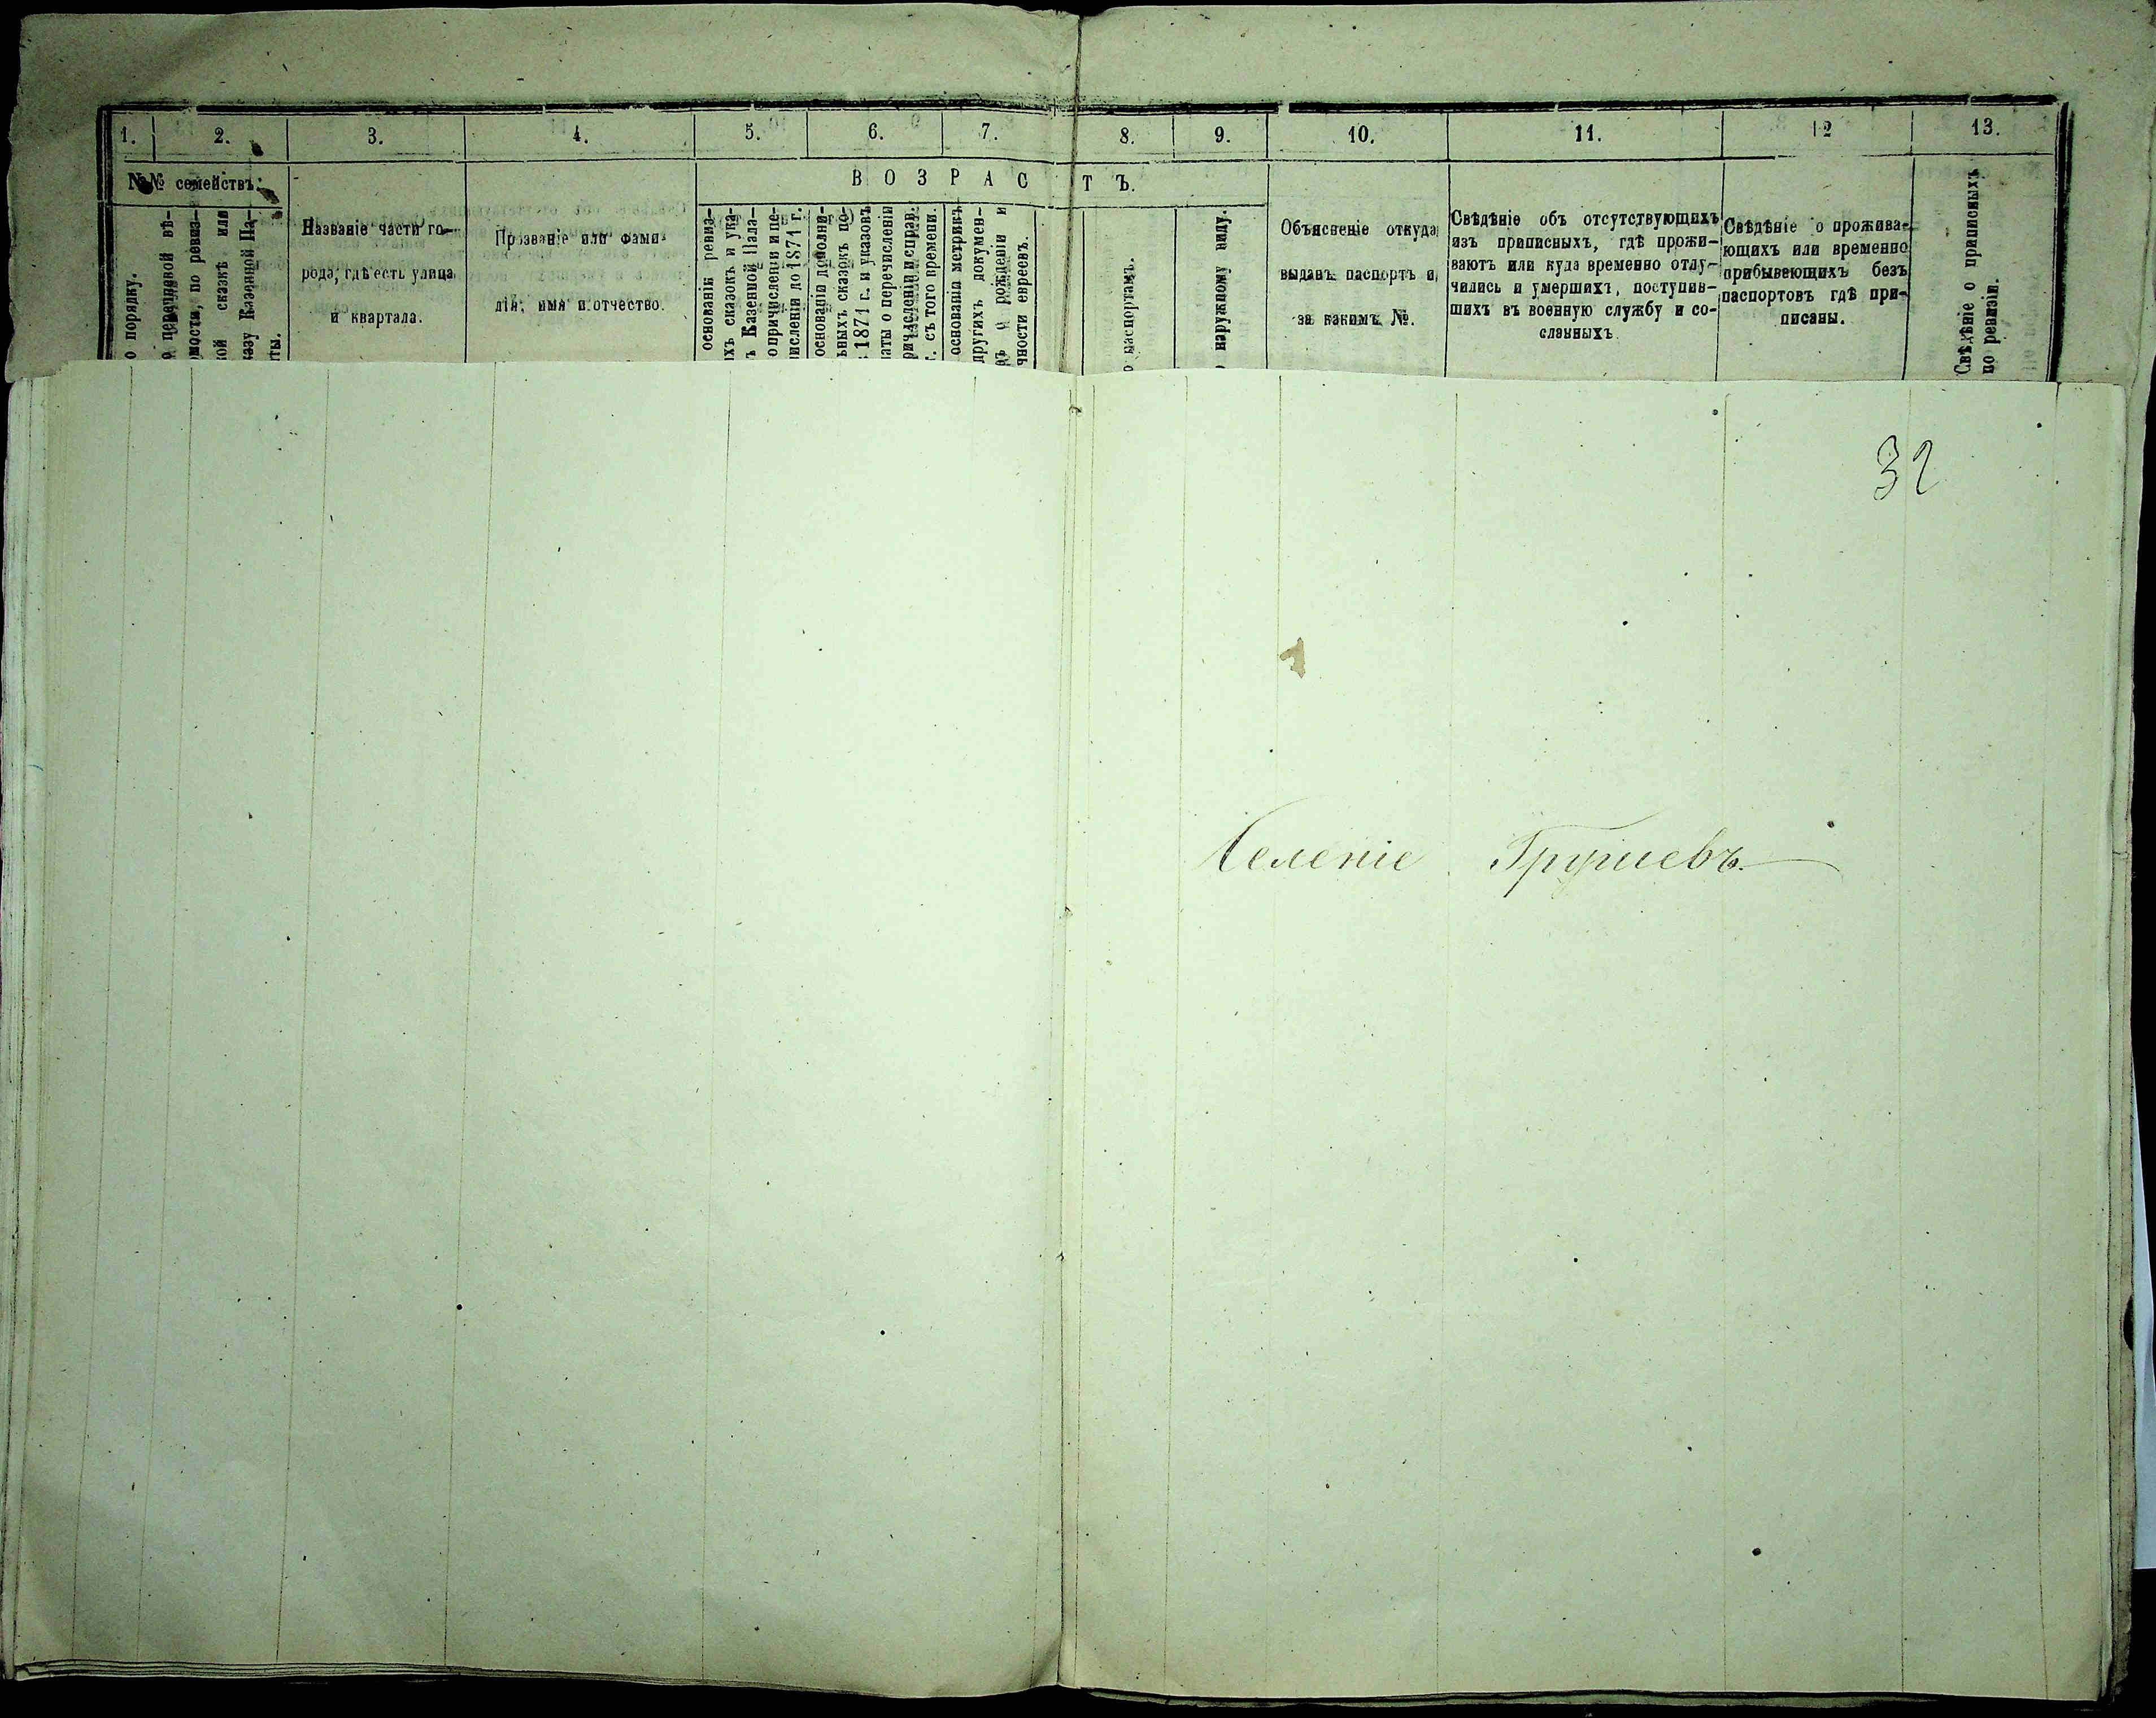 1. 2. 3. 4. 5. 6. 7. 8. 9. 10. 11. 12 13.
№№ семействъ.
ВОЗРАСТЪ.
о порядку.
о перечневой вѣ-
мости, по ревиз-
кой сказкѣ или
казу Казенной Па-
ты.
Названіе части го-
рода, гдѣ есть улица
и квартала.
Прозваніе или фами-
лія, имя и отчество.
основаніи ревиз-
хъ сказокъ и ука-
ъ Казенной Пала-
о причисленіи и пе-
числении до 1871 г.
основаніи дополни-
ьныхъ сказокъ по-
1871 г. и указовъ
латы о перечисленіи
ричисленіи и справ.
г. съ того времени.
основаніи метрикъ
другихъ докумен-
ъ о рожденіи и
чности евреевъ.
о паспортамъ.
о наружному виду.
Объясненіе откуда
выданъ паспортъ и
за какимъ №.
Свѣдѣніе объ отсутствующихъ
изъ приписныхъ, гдѣ прожи-
ваютъ или куда временно отлу-
чились и умершихъ, поступив-
шихъ въ военную службу и со-
сланныхъ
Свѣдѣніе о прожива-
ющихъ или временно
прибывеющихъ безъ
паспортовъ гдѣ при-
писаны.
Свѣдѣніе о приписныхъ
по ревизіи.
32
Селеніе Грушевъ.